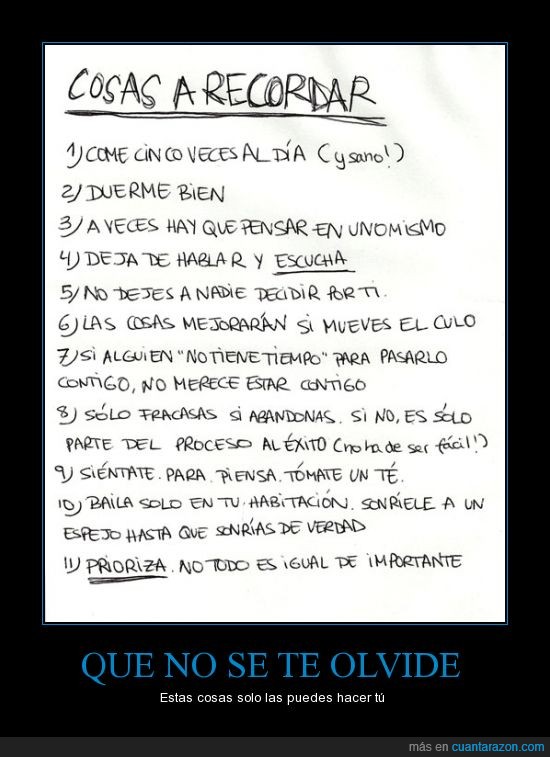 COSAS A RECORDAR
1) COME CINCO VECES AL DÍA (y sano!)
2) DUERME BIEN
3) A VECES HAY QUE PENSAR EN UNO MISMO
4) DEJA DE HABLAR Y ESCUCHA
5) NO DEJES A NADIE DECIDIR POR TI.
6) LAS COSAS MEJORARÁN SI MUEVES EL CULO
7) SI ALGUIEN "NO TIENE TIEMPO" PARA PASARLO
CONTIGO, NO MERECE ESTAR CONTIGO
8) SÓLO FRACASAS SI ABANDONAS. SI NO, ES SÓLO
PARTE DEL PROCESO AL ÉXITO (no ha de ser fácil!)
9) SIÉNTATE. PARA. PIENSA. TÓMATE UN TÉ.
10) BAILA SOLO EN TU HABITACIÓN. SONRÍELE A UN
ESPEJO HASTA QUE SONRÍAS DE VERDAD
11) PRIORIZA. NO TODO ES IGUAL DE IMPORTANTE
QUE NO SE TE OLVIDE
Estas cosas solo las puedes hacer tú
más en cuantarazon.com